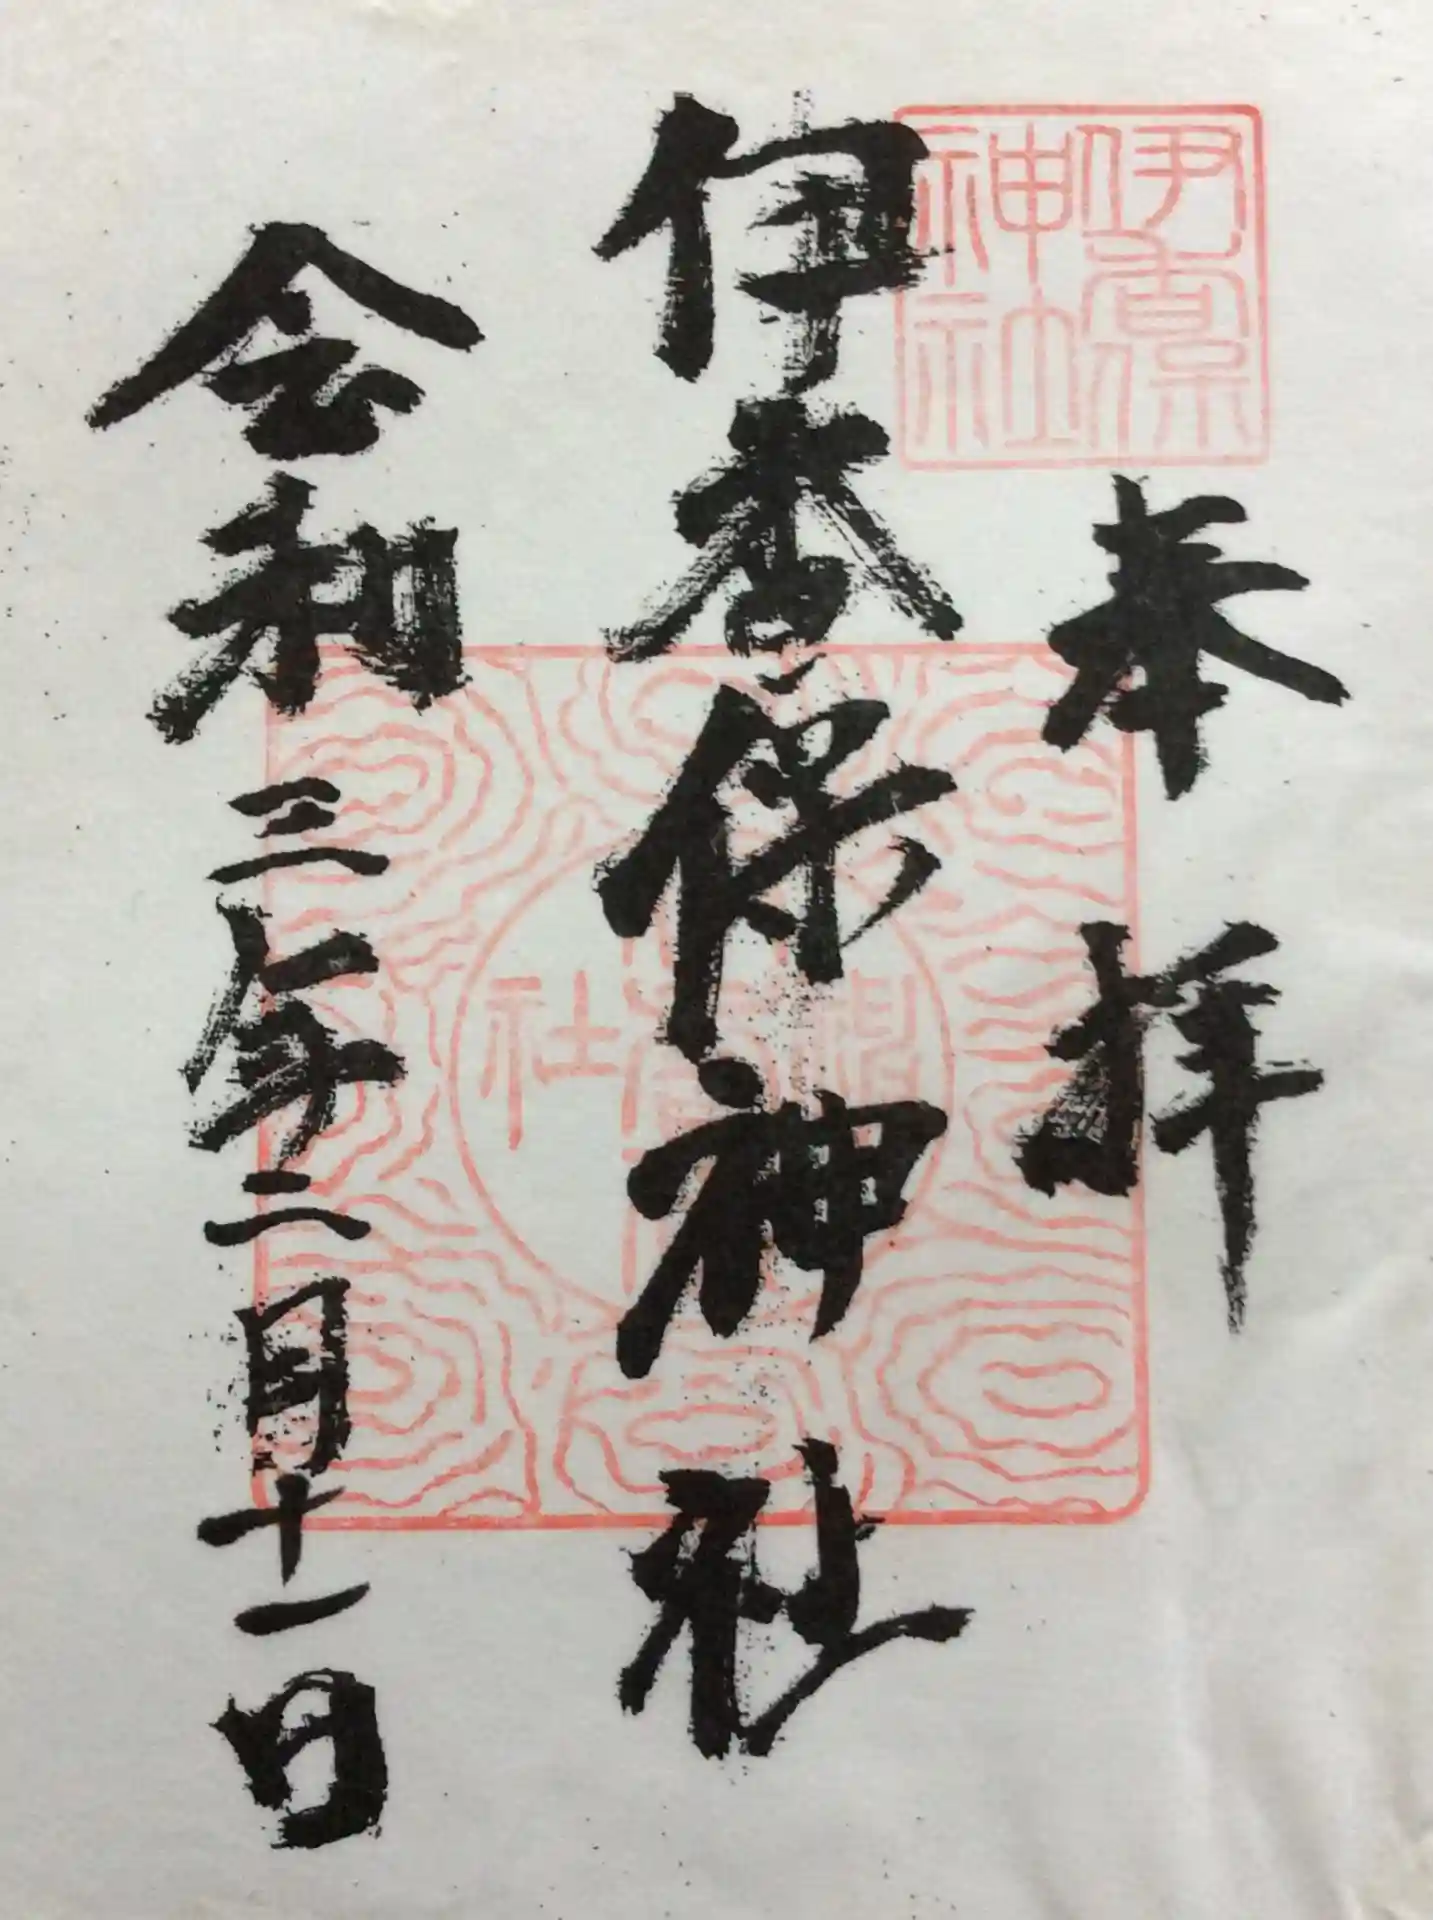 奉拝
伊香保神社
伊香保神社
令和三年二月十一日